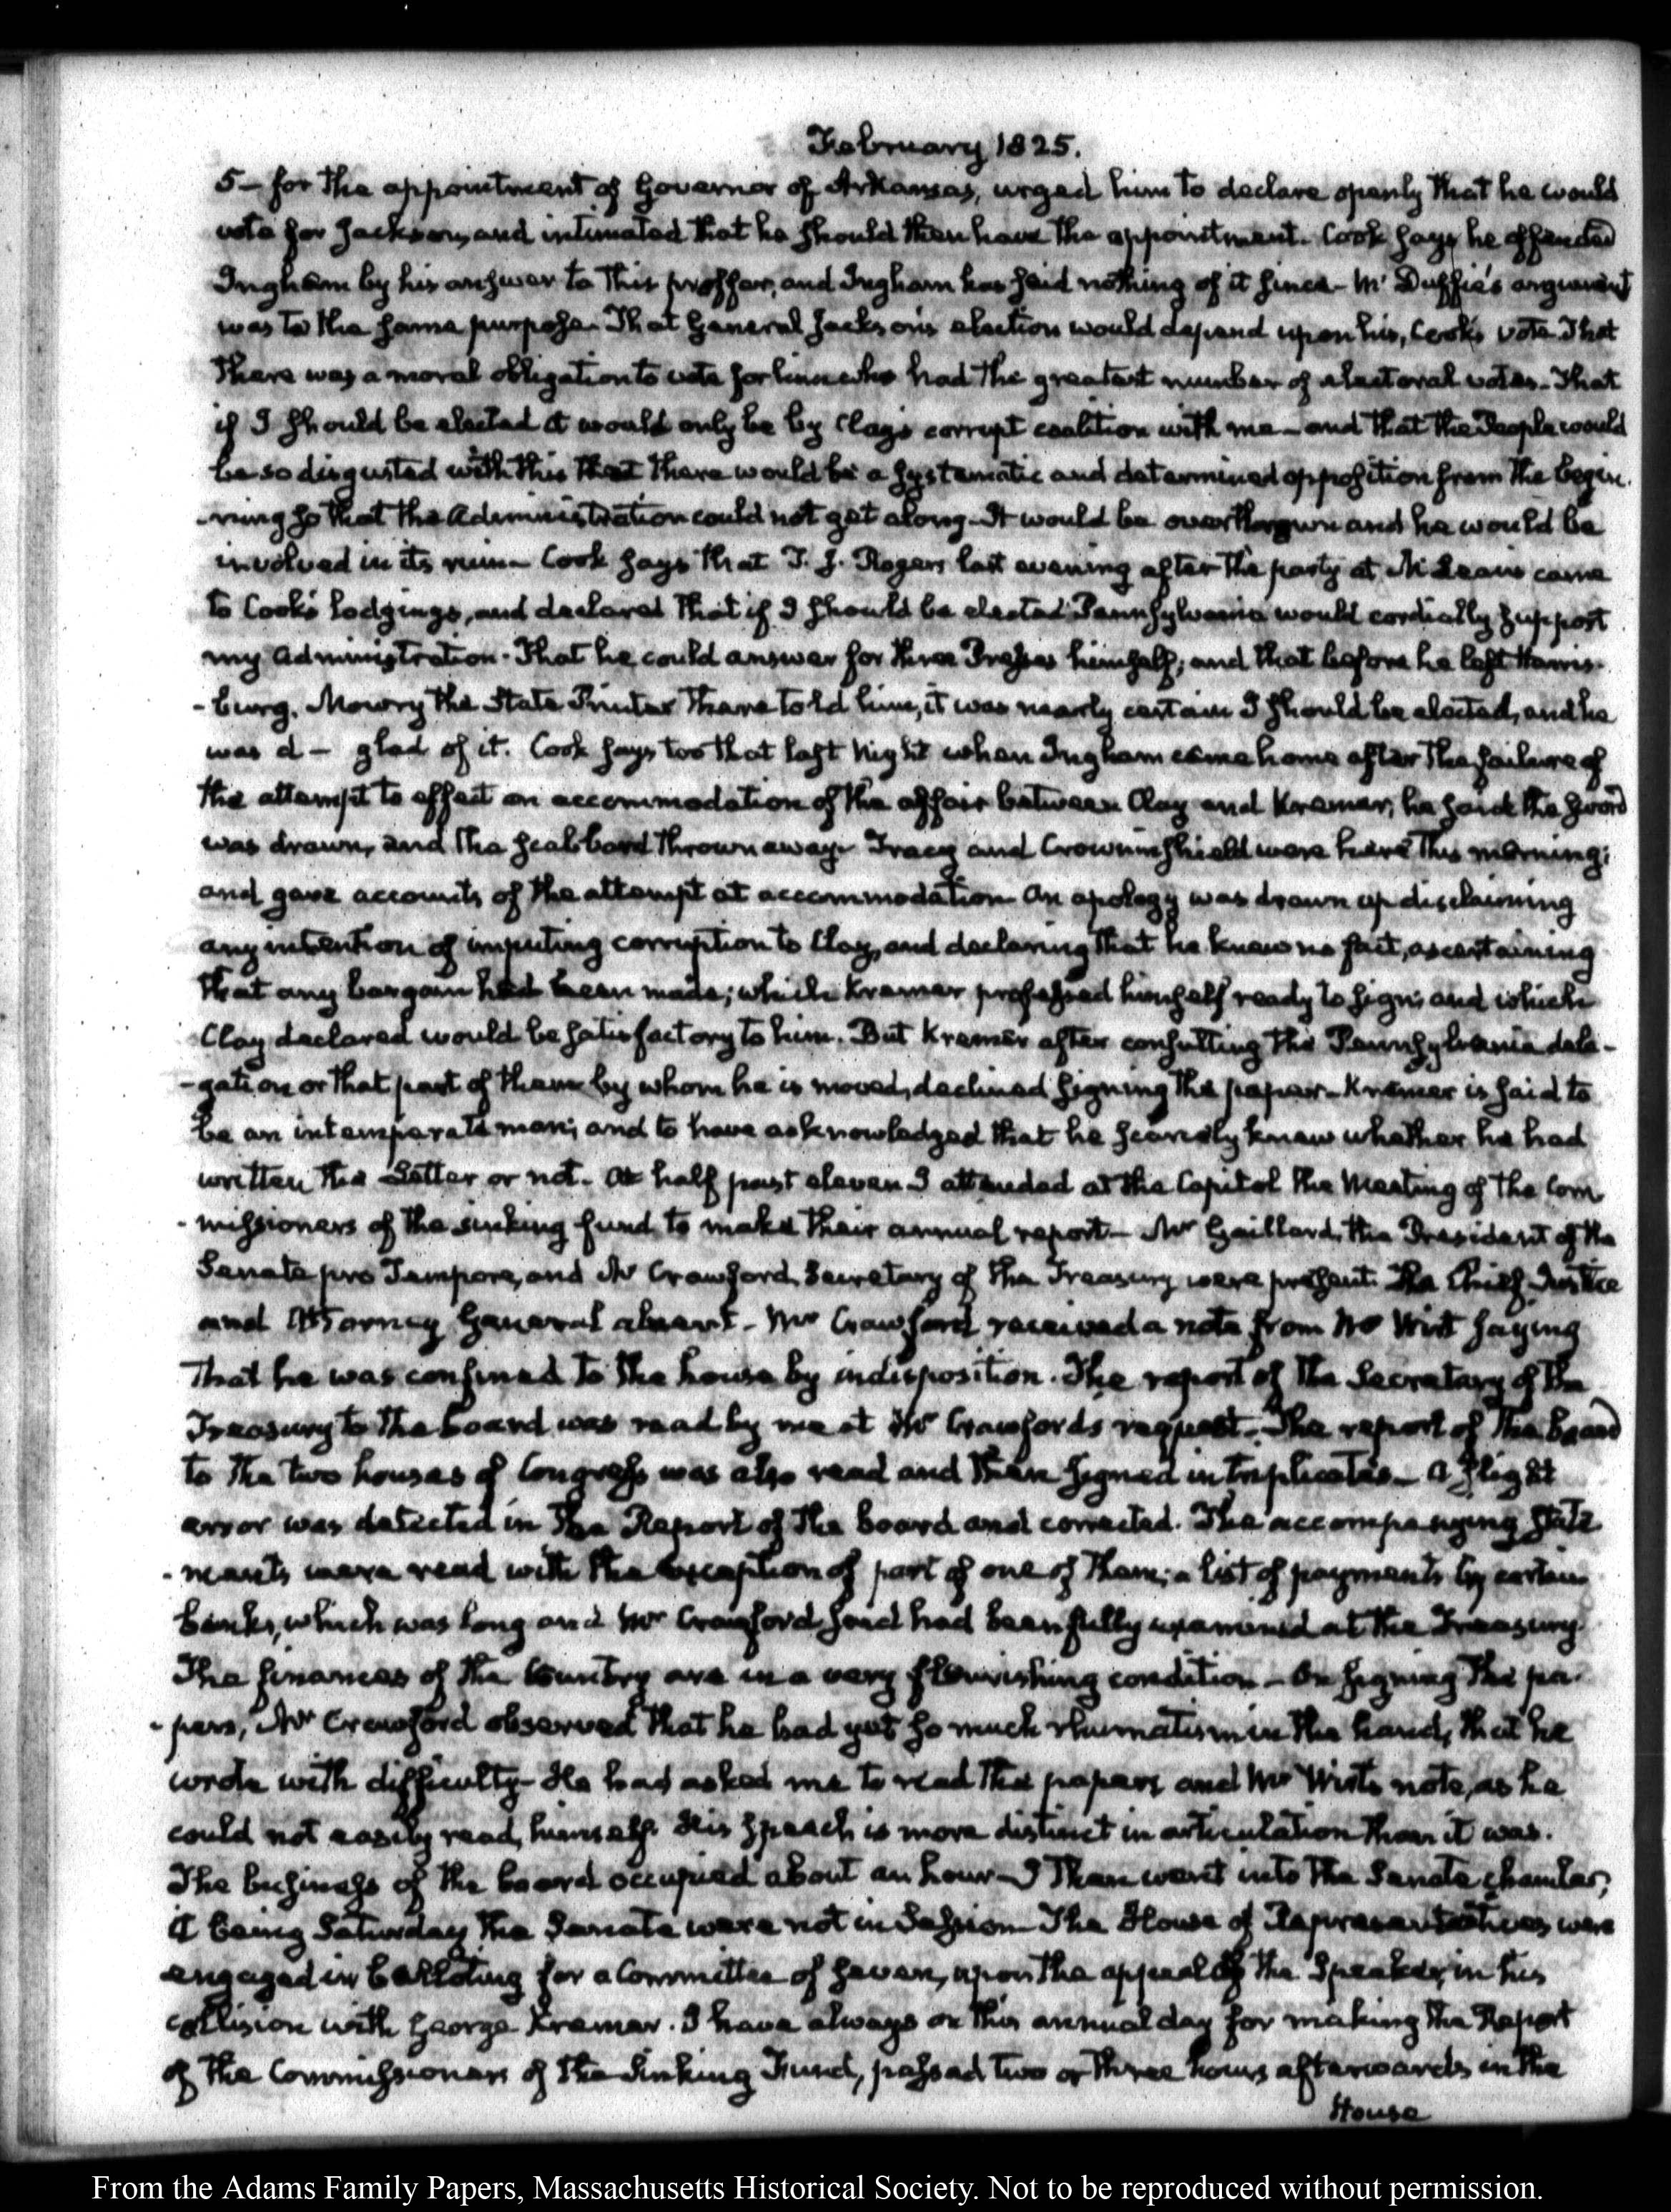 February 1825.
5 – for the appointment of Governor of Arkansas, urged him to declare openly that he would
vote for Jackson, and intimated that he should then have the appointment. Cook says he offended
Ingham by his answer to this proffer, and Ingham has said nothing of it since – McDuffie's argument
was to the same purpose. That General Jackson's election would depend upon his, Cook's vote. That
there was a moral obligation to vote for him who had the greatest number of electoral votes. That
if I should be elected it would only be by Clay's corrupt coalition with me – and that the People would
be so disgusted with this that there would be a systematic and determined opposition from the begin-
-ning so that the Administration could not get along – It would be overthrown and he would be
involved in its ruin – Cook says that T. J. Rogers last evening after the party at McLean's came
to Cook's lodgings, and declared that if I should be elected Pennsylvania would cordially support
my Administration. That he could answer for three Presses himself; and that before he left Harris-
-burg, Mowry the State Printer there told him, it was nearly certain I should be elected, and he
was d— glad of it. Cook says too that last Night when Ingham came home after the failure of
the attempt to effect an accommodation of the affair between Clay and Kremer, he said the sword
was drawn, and the scabbard thrown away. Tracy and Crowninshield were here this morning;
and gave accounts of the attempt at accommodation. An apology was drawn up disclaiming
any intention of imputing corruption to Clay, and declaring that he knew no fact, ascertaining
that any bargain had been made; which Kremer professed himself ready to sign; and which
Clay declared would be satisfactory to him. But Kremer after consulting the Pennsylvania dele-
-gation or that part of them by whom he is moved, declined signing the paper – Kremer is said to
be an intemperate man; and to have acknowledged that he scarcely knew whether he had
written the Letter or not. At half past eleven I attended at the Capitol the Meeting of the Com
-missioners of the sinking fund to make their annual report – Mr Gaillard, the President of the
Senate pro Tempore, and Mr Crawford, Secretary of the Treasury were present. The Chief Justice
and Attorney General absent – Mr Crawford received a note from Mr Wirt saying
that he was confined to the house by indisposition. The report of the Secretary of the
Treasury to the board was read by me at Mr Crawford's request. The report of the board
to the two houses of Congress was also read and then signed in triplicates – A slight
error was detected in the Report of the board and corrected. The accompanying state
-ments were read with the exception of part of one of them; a list of payments by certain
banks, which was long and Mr Crawford said had been fully examined at the Treasury.
The finances of the Country are in a very flourishing condition – On signing the pa-
-pers, Mr Crawford observed that he had yet so much rhumatism in the hand, that he
wrote with difficulty – He had asked me to read the papers and Mr Wirt's note, as he
could not easily read, himself. His speech is more distinct in articulation than it was.
The business of the board occupied about an hour – I then went into the Senate chamber;
it being Saturday the Senate were not in Session – The House of Representatives were
engaged in balloting for a Committee of seven, upon the appeal of the Speaker, in his
collision with George Kremer. I have always on this annual day for making the Report
of the Commissioners of the Sinking Fund, passed two or three hours afterwards in the
House
From the Adams Family Papers, Massachusetts Historical Society. Not to be reproduced without permission.